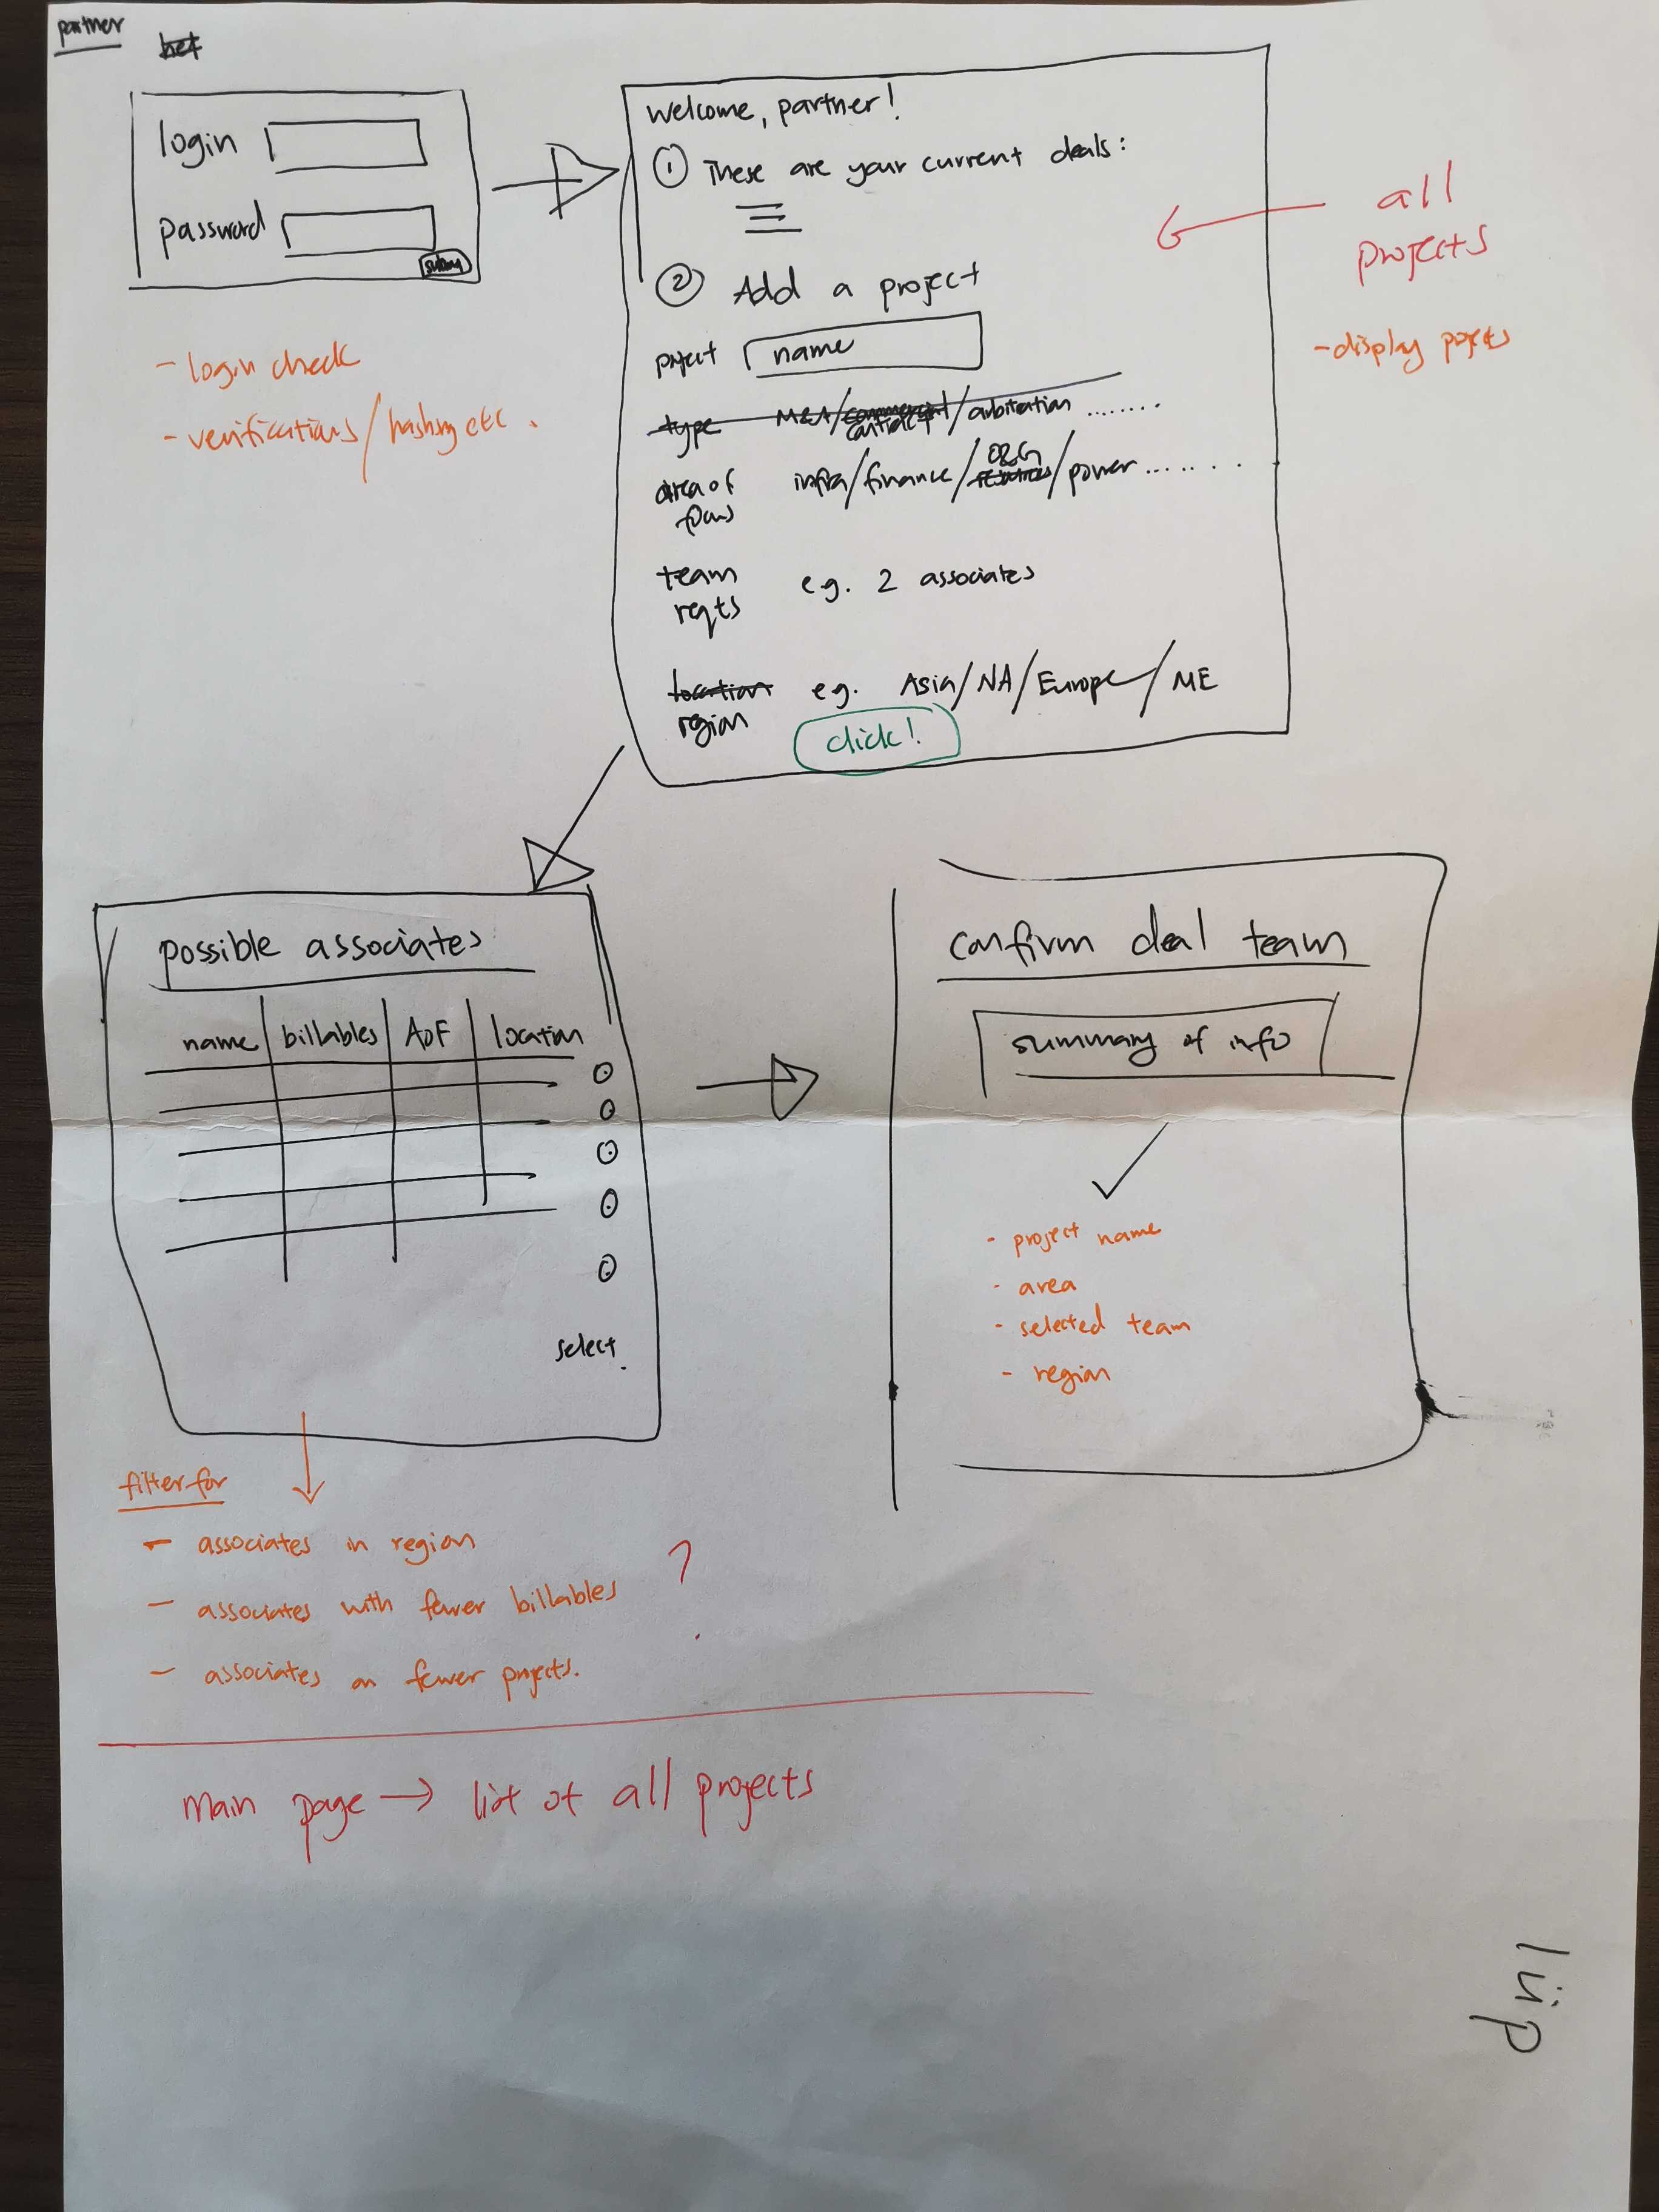 partner
login
password
submit
- login check
- verifications/hashing etc.
welcome, partner!
① These are your current deals:
② Add a project
project name
type M&A/contract/arbitration ........
area of focus infra/finance/O&G/power.......
team reqts e.g. 2 associates
location
region e.g. Asia/NA/Europe/ME
click!
all
projects
- display projects
possible associates
name billables AoF location
select.
filter for
- associates in region
- associates with fewer billables
- associates on fewer projects.
?
confirm deal team
summary of info
- project name
- area
- selected team
- region
main page → list of all projects